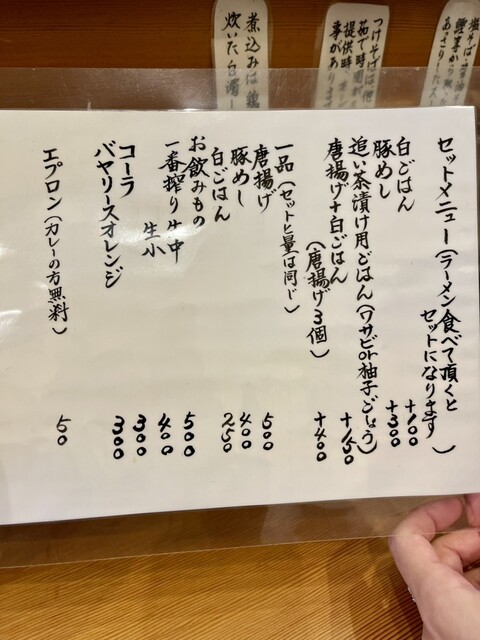 セットメニュー(ラーメン食べて頂くと
セットになります)
白ごはん +100
豚めし +300
追い茶漬け用ごはん(ワサビor柚子ごしょう) +150
唐揚げ+白ごはん
(唐揚げ3個) +400
一品(セットと量は同じ)
唐揚げ 500
豚めし 400
白ごはん 250
お飲みもの
一番搾り生中 500
生小 400
コーラ 300
バヤリースオレンジ 300
エプロン(カレーの方無料) 50
つけそばは
茹で時間
提供時
事があります
煮込みは鶏
炊いた白湯